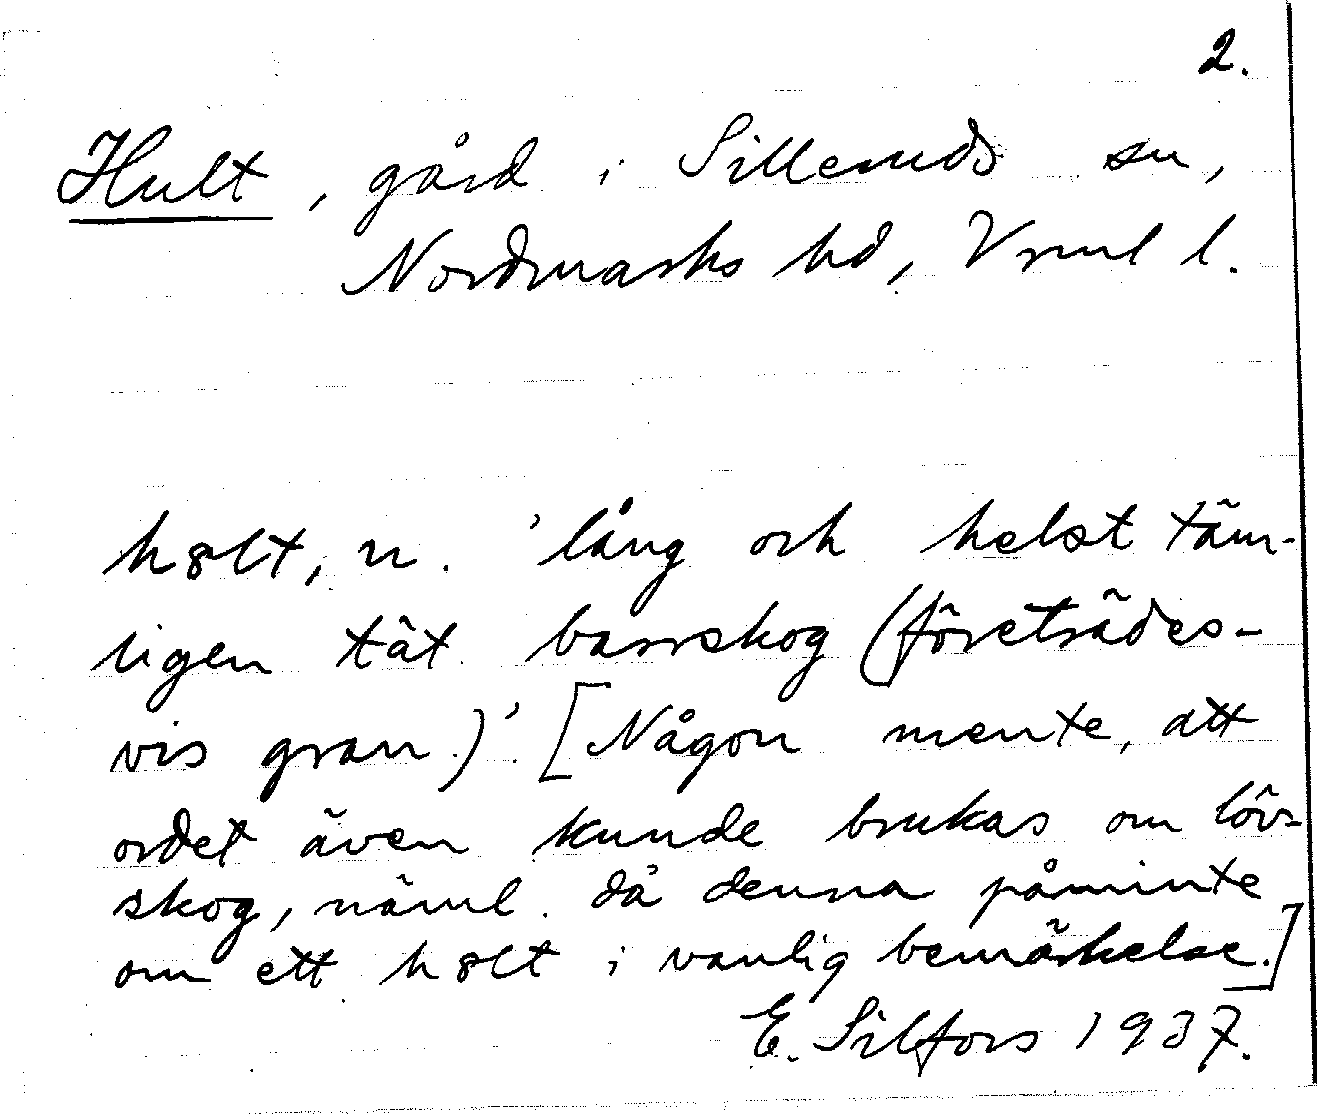 2.
Hult, gård i Silleruds sn,
Nordmarks hd, Vrml l.
h8lt, n. 'lång och helst täm-
ligen tät barrskog (företrädes-
vis gran)'. [Någon mente, att
ordet även kunde brukas om löv-
skog, näml. då denna påminte
om ett h8lt i vanlig bemärkelse.]
E. Silfors 1937.